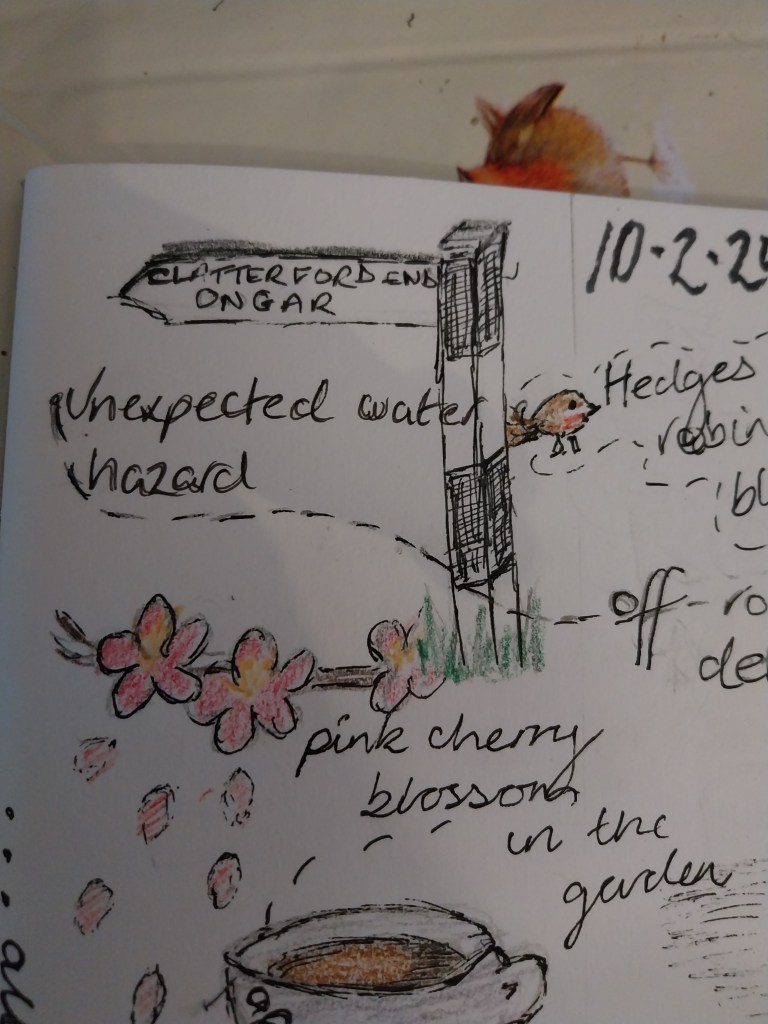 CLATTERFORD END
ONGAR
10.2.2
Unexpected water
hazard
Hedges
robin
bl
off-ro
de
pink cherry
blossom
in the
garden